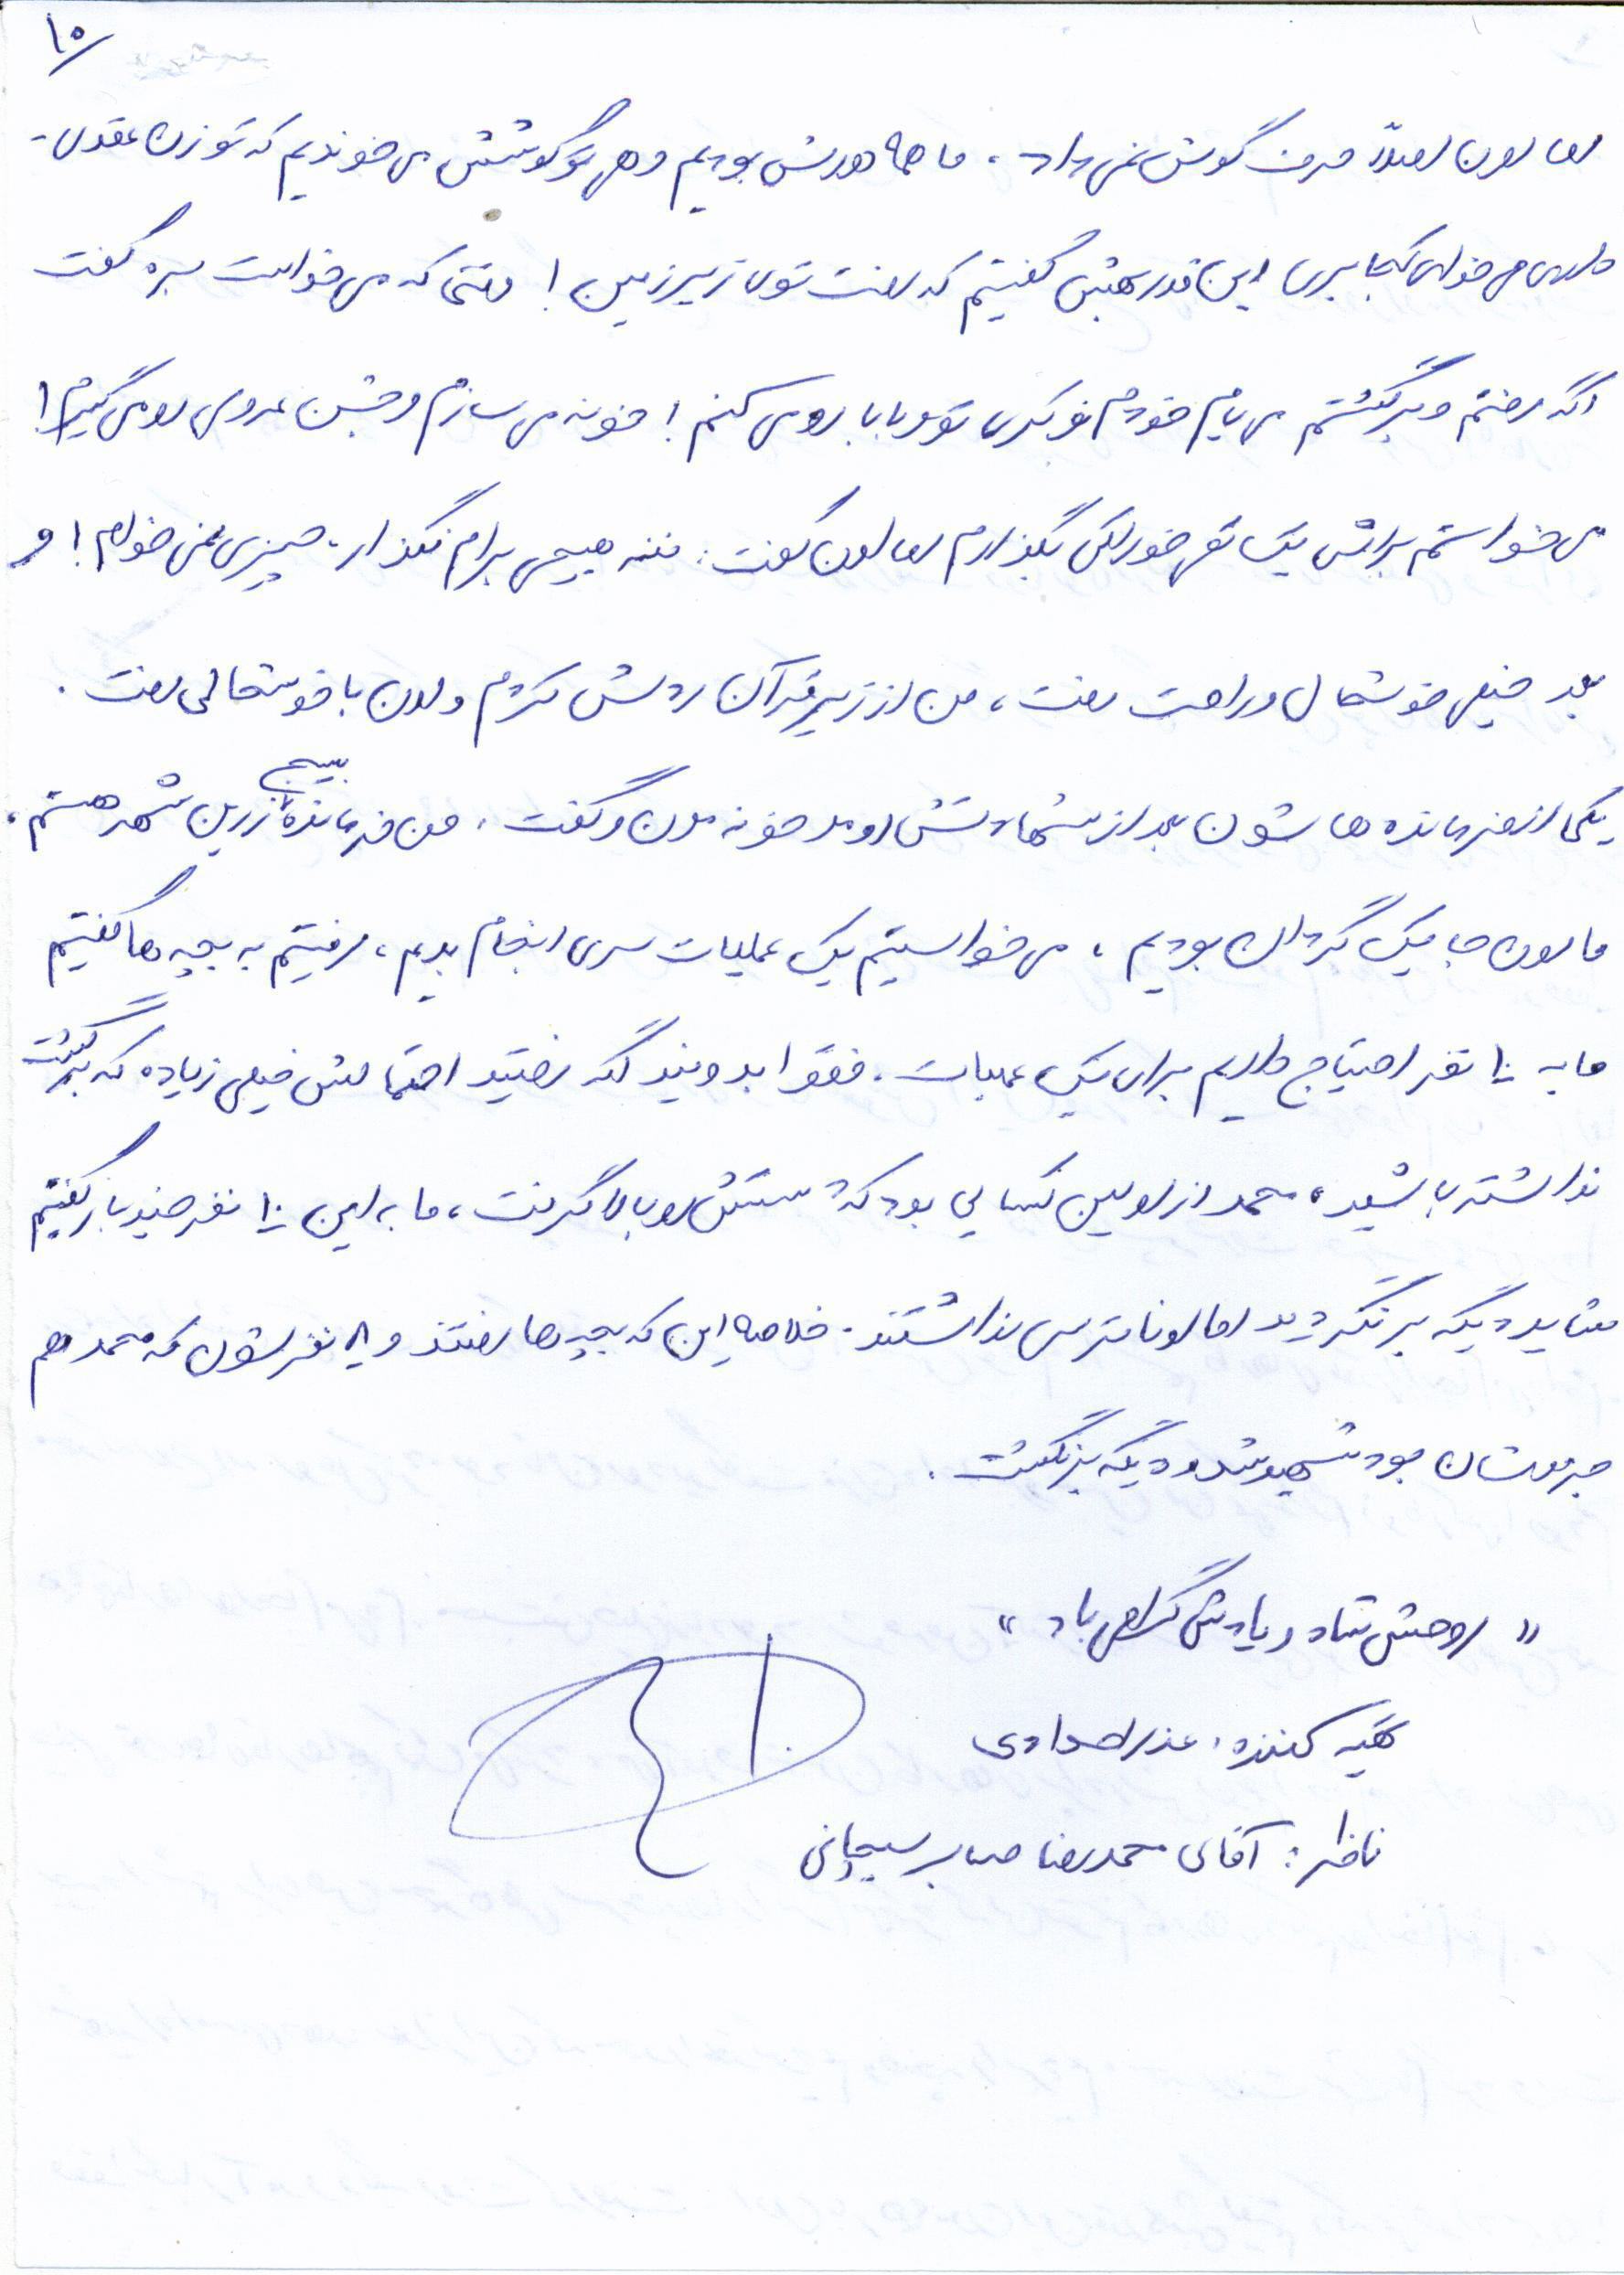 ۱۰
اما اون اصلاً حرف گوش نمی داد، ما همه دورش بودیم و هی تو گوشش می خوندیم که تو زن عقدی -
داری می خوای کجا بری این قدر بهش گفتیم که رفت توی زیرزمین! وقتی که می خواست بره گفت
اگه رفتم و برگشتم می یام خودم نوکری تو و بابا رو می کنم! خونه می سازم و جشن عروسی رو می گیرم!
می خواستم براش یک خوراکی بگذارم اما اون گفت: ننه هیچی برام نگذار. چیزی نمی خوام! و
بعد خیلی خوشحال و راحت رفت، من از زیر قرآن ردش کردم و اون با خوشحالی رفت.
یکی از فرمانده هاشون بعد از شهادتش اومد خونه مون و گفت. من فرمانده بسیج زرین شهر هستم،
ما اون جا یک گردان بودیم، می خواستیم یک عملیات سری انجام بدیم، رفتیم به بچه ها گفتیم
ما به ۱۰ نفر احتیاج داریم برای یک عملیات. فقط بدونید اگه رفتید احتمالش خیلی زیاده که برگشت
نداشته باشید، محمد از اولین کسایی بود که دستش رو بالا گرفت، ما به این ۱۰ نفر چند بار گفتیم
شاید دیگه برنگردید اما اونا ترس نداشتند. خلاصه این که بچه ها رفتند و ۸ نفرشون که محمد هم
جزوشان بود شهید شد و دیگه برنگشت.
« روحش شاد و یادش گرامی باد »
تهیه کننده: عذرا مرادی
ناظر: آقای محمدرضا صابر سیچانی